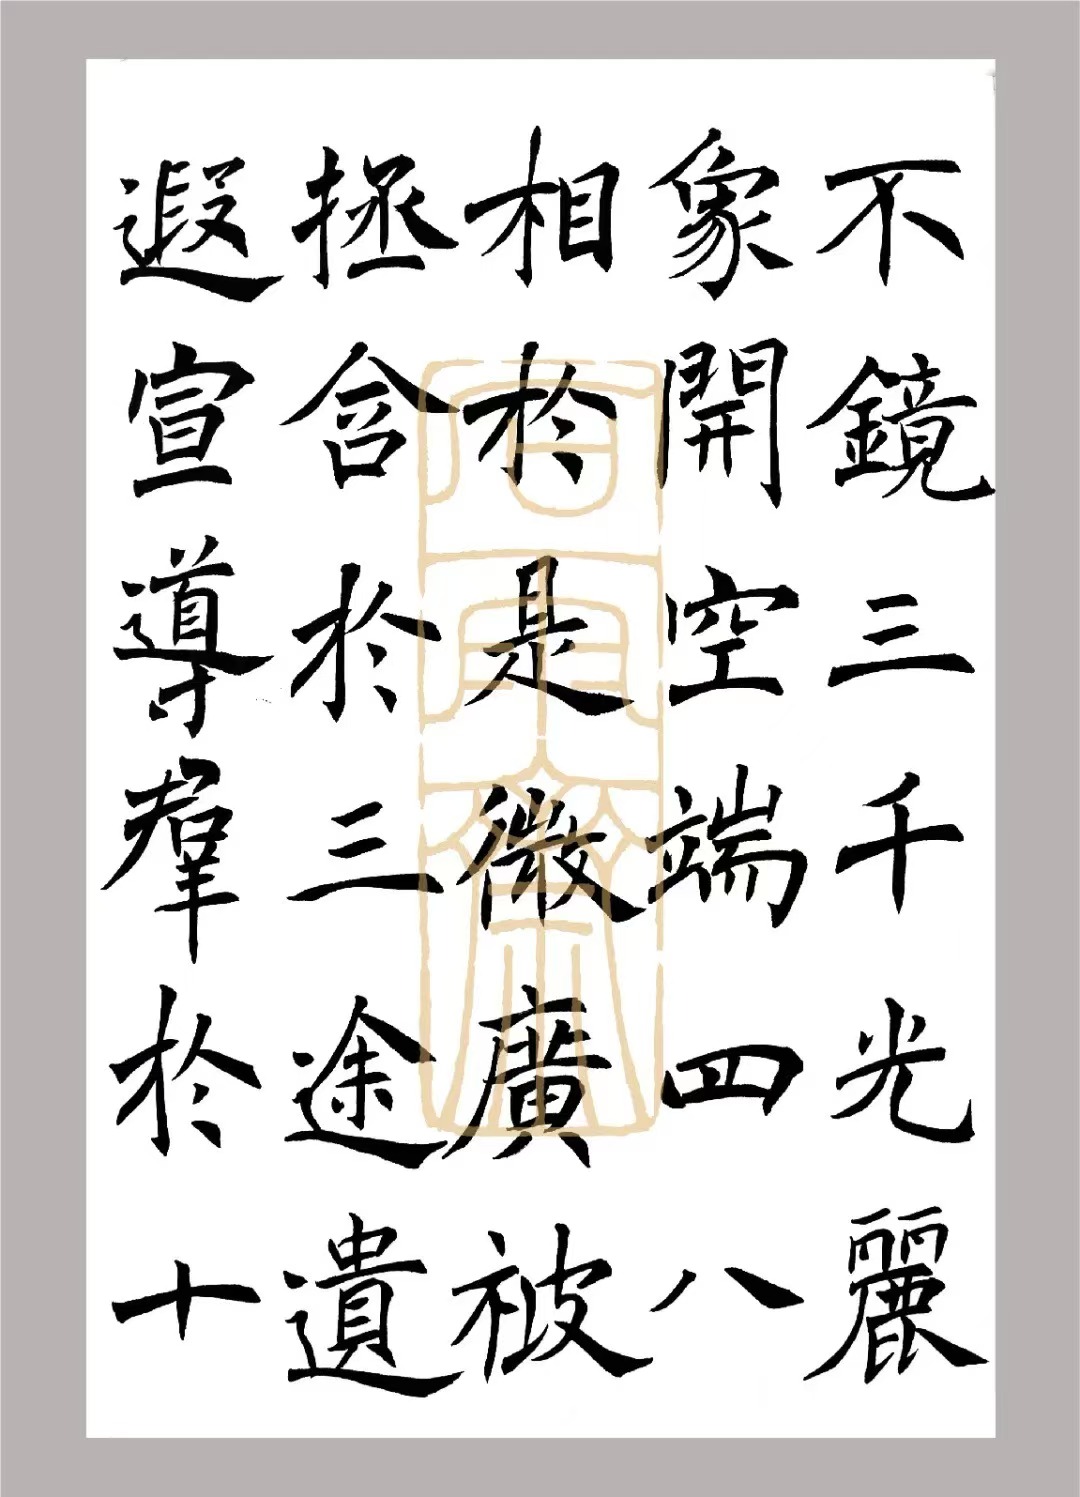 不鏡三千光麗
象開空端四八
相於是微廣被
拯含於三途遺
遐宣導羣於十